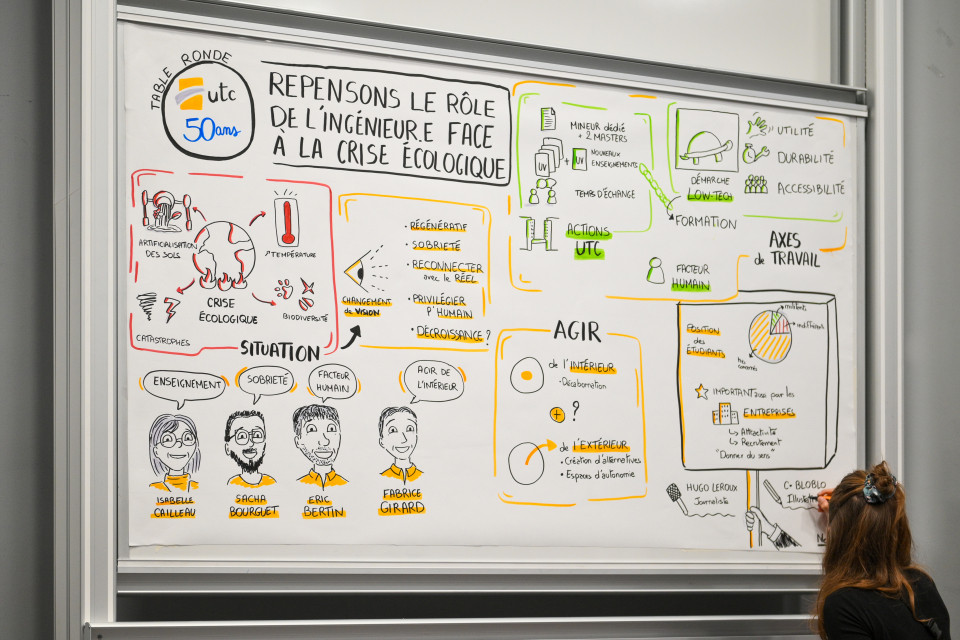 TABLE RONDE
utc
50ans
REPENSONS LE RÔLE
DE L'INGÉNIEUR.E FACE
À LA CRISE ÉCOLOGIQUE
ARTIFICIALISATION
DES SOLS
↗TEMPÉRATURE
CRISE
ÉCOLOGIQUE
↘BIODIVERSITÉ
CATASTROPHES
SITUATION
CHANGEMENT
de VISION
• RÉGÉNÉRATIF
• SOBRIÉTÉ
• RECONNECTER
avec le RÉEL
• PRIVILÉGIER
l'HUMAIN
• DÉCROISSANCE ?
ENSEIGNEMENT
SOBRIÉTÉ
FACTEUR
HUMAIN
AGIR DE
L'INTÉRIEUR
ISABELLE
CAILLEAU
SACHA
BOURGUET
ERIC
BERTIN
FABRICE
GIRARD
AGIR
de l'INTÉRIEUR
• Décarbonation
+ ?
de l'EXTÉRIEUR
• Création d'alternatives
• Espaces d'autonomie
MINEUR dédié
+ 2 MASTERS
UV + UV
NOUVEAUX
ENSEIGNEMENTS
TEMPS D'ÉCHANGE
ACTIONS
UTC
DÉMARCHE
LOW-TECH
UTILITÉ
DURABILITÉ
ACCESSIBILITÉ
FORMATION
AXES
de TRAVAIL
FACTEUR
HUMAIN
POSITION
des
ÉTUDIANTS
militants
indifférents
très
concernés
IMPORTANT aussi pour les
ENTREPRISES
↳ Attractivité
↳ Recrutement
"Donner du sens"
HUGO LEROUX
Journaliste
C• BLOBLO